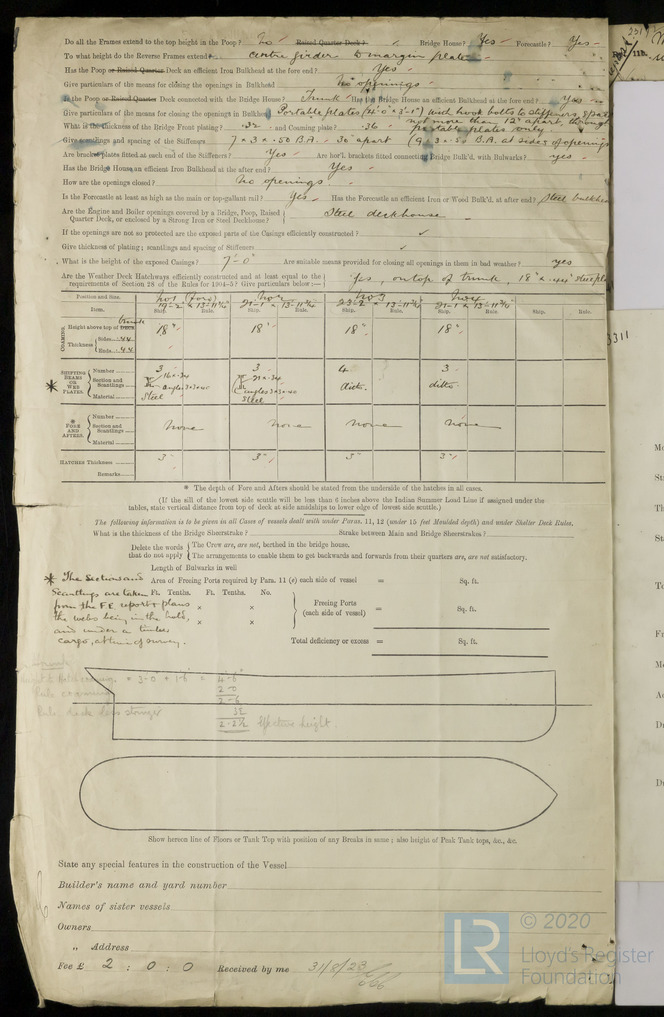 Do all the Frames extend to the top height in the Poop? No Raised Quarter Deck? Bridge House? Yes Forecastle? Yes
To what height do the Reverse Frames extend? centre girder to margin plate
Has the Poop or Raised Quarter Deck an efficient Iron Bulkhead at the fore end? Yes
Give particulars of the means for closing the openings in Bulkhead No openings
Is the Poop or Raised Quarter Deck connected with the Bridge House? Trunk Has the Bridge House an efficient Bulkhead at the fore end? Yes
Give particulars of the means for closing the openings in Bulkhead Portable plates (4'-0" x 3'-1") with hook bolts to stiffeners, spaced
not more than 12" apart, through
What is the thickness of the Bridge Front plating? .32 and Coaming plate? .36 portable plates only.
Give scantlings and spacing of the Stiffeners 7 x 3 x .50 B.A. 30" apart (9 x 3 x .50 B.A. at sides of openings
Are bracket plates fitted at each end of the Stiffeners? Yes Are hor'l. brackets fitted connecting Bridge Bulk'd. with Bulwarks? yes
Has the Bridge House an efficient Iron Bulkhead at the after end? Yes
How are the openings closed? No openings
Is the Forecastle at least as high as the main or top-gallant rail? Yes Has the Forecastle an efficient Iron or Wood Bulk'd. at after end? Steel bulkhead
Are the Engine and Boiler openings covered by a Bridge, Poop, Raised
Quarter Deck, or enclosed by a Strong Iron or Steel Deckhouse? Steel deckhouse
If the openings are not so protected are the exposed parts of the Casings efficiently constructed?
Give thickness of plating; scantlings and spacing of Stiffeners
What is the height of the exposed Casings? 7'-0" Are suitable means provided for closing all openings in them in bad weather? yes
Are the Weather Deck Hatchways efficiently constructed and at least equal to the
requirements of Section 28 of the Rules for 1904-5? Give particulars below:— Yes, on top of trunk, 18" x .44 steel
Position and Size. No 1 (Fore) No 2 No 3 No 4
Item. Ship. Rule. Ship. Rule. Ship. Rule. Ship. Rule. Ship. Rule.
COAMING. Height above top of trunk 18" 18" 18" 18"
Thickness Sides .44
Ends .44
SHIPPING BEAMS OR WEB PLATES. Number 3 3 4 3
Section and Scantlings angles 3 x 3 x .40 angles 3 x 3 x .40 ditto ditto
Material Steel Steel
FORE AND AFTERS. Number
Section and Scantlings None None None None
Material
HATCHES Thickness 3" 3" 3" 3"
Remarks
* The depth of Fore and Afters should be stated from the underside of the hatches in all cases.
(If the sill of the lowest side scuttle will be less than 6 inches above the Indian Summer Load Line if assigned under the
tables, state vertical distance from top of deck at side amidships to lower edge of lowest side scuttle.)
The following information is to be given in all Cases of vessels dealt with under Paras. 11, 12 (under 15 feet Moulded depth) and under Shelter Deck Rules.
What is the thickness of the Bridge Sheerstrake? Strake between Main and Bridge Sheerstrakes?
Delete the words that do not apply
The Crew are, are not, berthed in the bridge house.
The arrangements to enable them to get backwards and forwards from their quarters are, are not satisfactory.
Length of Bulwarks in well
Area of Freeing Ports required by Para. 11 (e) each side of vessel = Sq. ft.
Ft. Tenths. Ft. Tenths. No.
× ×
× ×
Freeing Ports
(each side of vessel) = Sq. ft.
Total deficiency or excess = Sq. ft.
* The Sections and
scantlings are taken
from the F.E. report & plans
the webs being in the hold,
and under a timber
cargo, at time of survey.
3-0 + 1-6 = 4-6
2-0
2-6
2-2½ Effective height.
Show hereon line of Floors or Tank Top with position of any Breaks in same; also height of Peak Tank tops, &c., &c.
State any special features in the construction of the Vessel
Builder's name and yard number
Names of sister vessels
Owners
„ Address
Fee £ 2 : 0 : 0 Received by me 31/8/23
LR
© 2020
Lloyd's Register
Foundation
3311